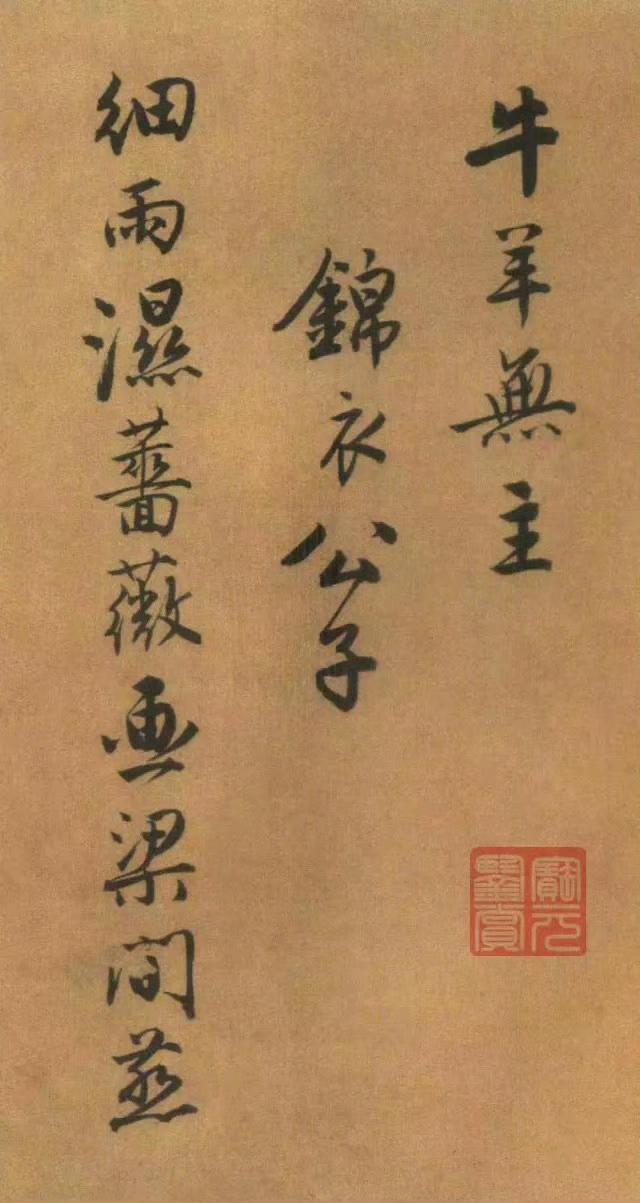 牛羊無主
錦衣公子
細雨濕薔薇画梁間燕